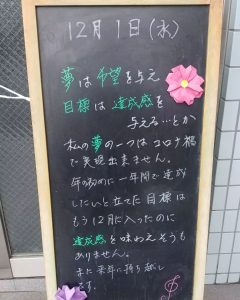 12月1日(水)
夢は希望を与え
目標は達成感を
与える…とか
私の夢の一つはコロナ禍
で実現出来ません。
年の初めに一年間で達成
したいと立てた目標は
もう12月に入ったのに
達成感を味わえそうも
ありません。
また来年に持ち越し
です。